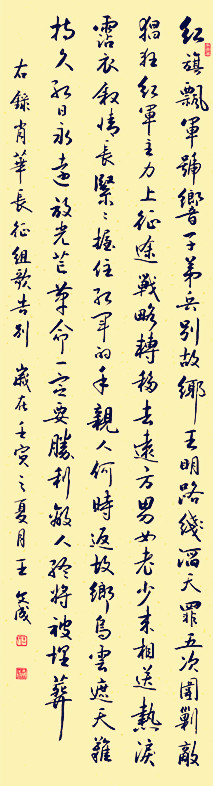 红旗飄軍號響子弟兵别故鄉王明路綫滔天罪五次圍剿敵
猖狂红軍主力上征途戰略轉移去遠方男女老少来相送熱淚
霑衣叙情長緊〻握住红軍的手親人何時返故鄉烏雲遮天難
持久红日永遠放光芒革命一定要勝利敵人终將被埋葬
右錄肖華長征組歌告别 歲在壬寅之夏月王成